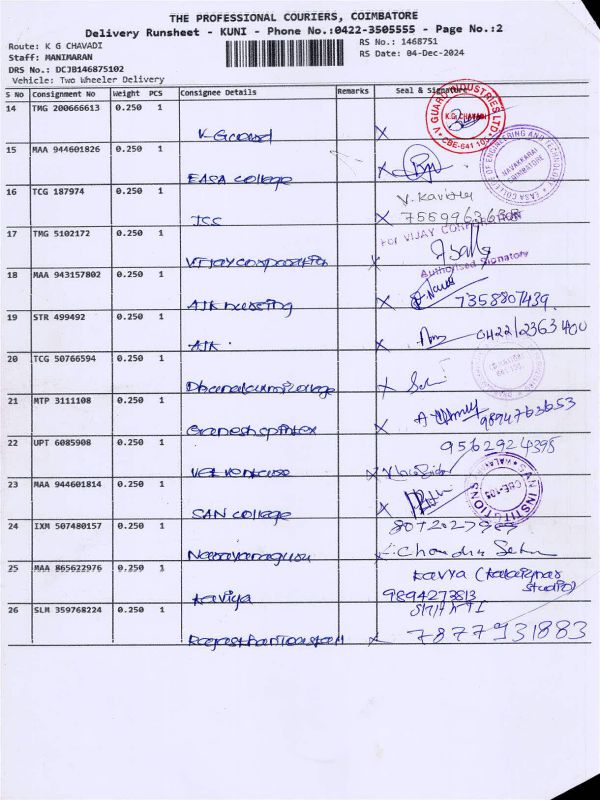 THE PROFESSIONAL COURIERS, COIMBATORE
Delivery Runsheet - KUNI - Phone No.:0422-3505555 - Page No.:2
Route: K G CHAVADI
RS No.: 1468751
Staff: MANIMARAN
RS Date: 04-Dec-2024
DRS No.: DCJB146875102
Vehicle: Two Wheeler Delivery
S No Consignment No Weight PCS Consignee Details Remarks Seal & Signature
14 TMG 200666613 0.250 1
V-Guard
V GUARD INDUSTRIES LTD
K.G CHAVADI
CBE-641 105
15 MAA 944601826 0.250 1
EASA college
EASA COLLEGE OF ENGINEERING AND TECHNOLOGY
NAVAKKARAI
COIMBATORE
16 TCG 187974 0.250 1
V. Kavitha
17 TMG 5102172 0.250 1
Vijay corporation
For VIJAY CORPORATION
Authorised Signatory
18 MAA 943157802 0.250 1
AJK nursing
7358807439
19 STR 499492 0.250 1
AJK
0422/2363400
20 TCG 50766594 0.250 1
Dhanalakshmi college
21 MTP 3111108 0.250 1
Ganesh spintex
9894763653
22 UPT 6085908 0.250 1
9562924398
23 MAA 944601814 0.250 1
SAN college
SAN INSTITUTIONS
CBE-105
24 IXM 507480157 0.250 1
Narayanaguru
25 MAA 865622976 0.250 1
kaviya
kavya (kalaignar studio)
9894273813
26 SLM 359768224 0.250 1
7877931883